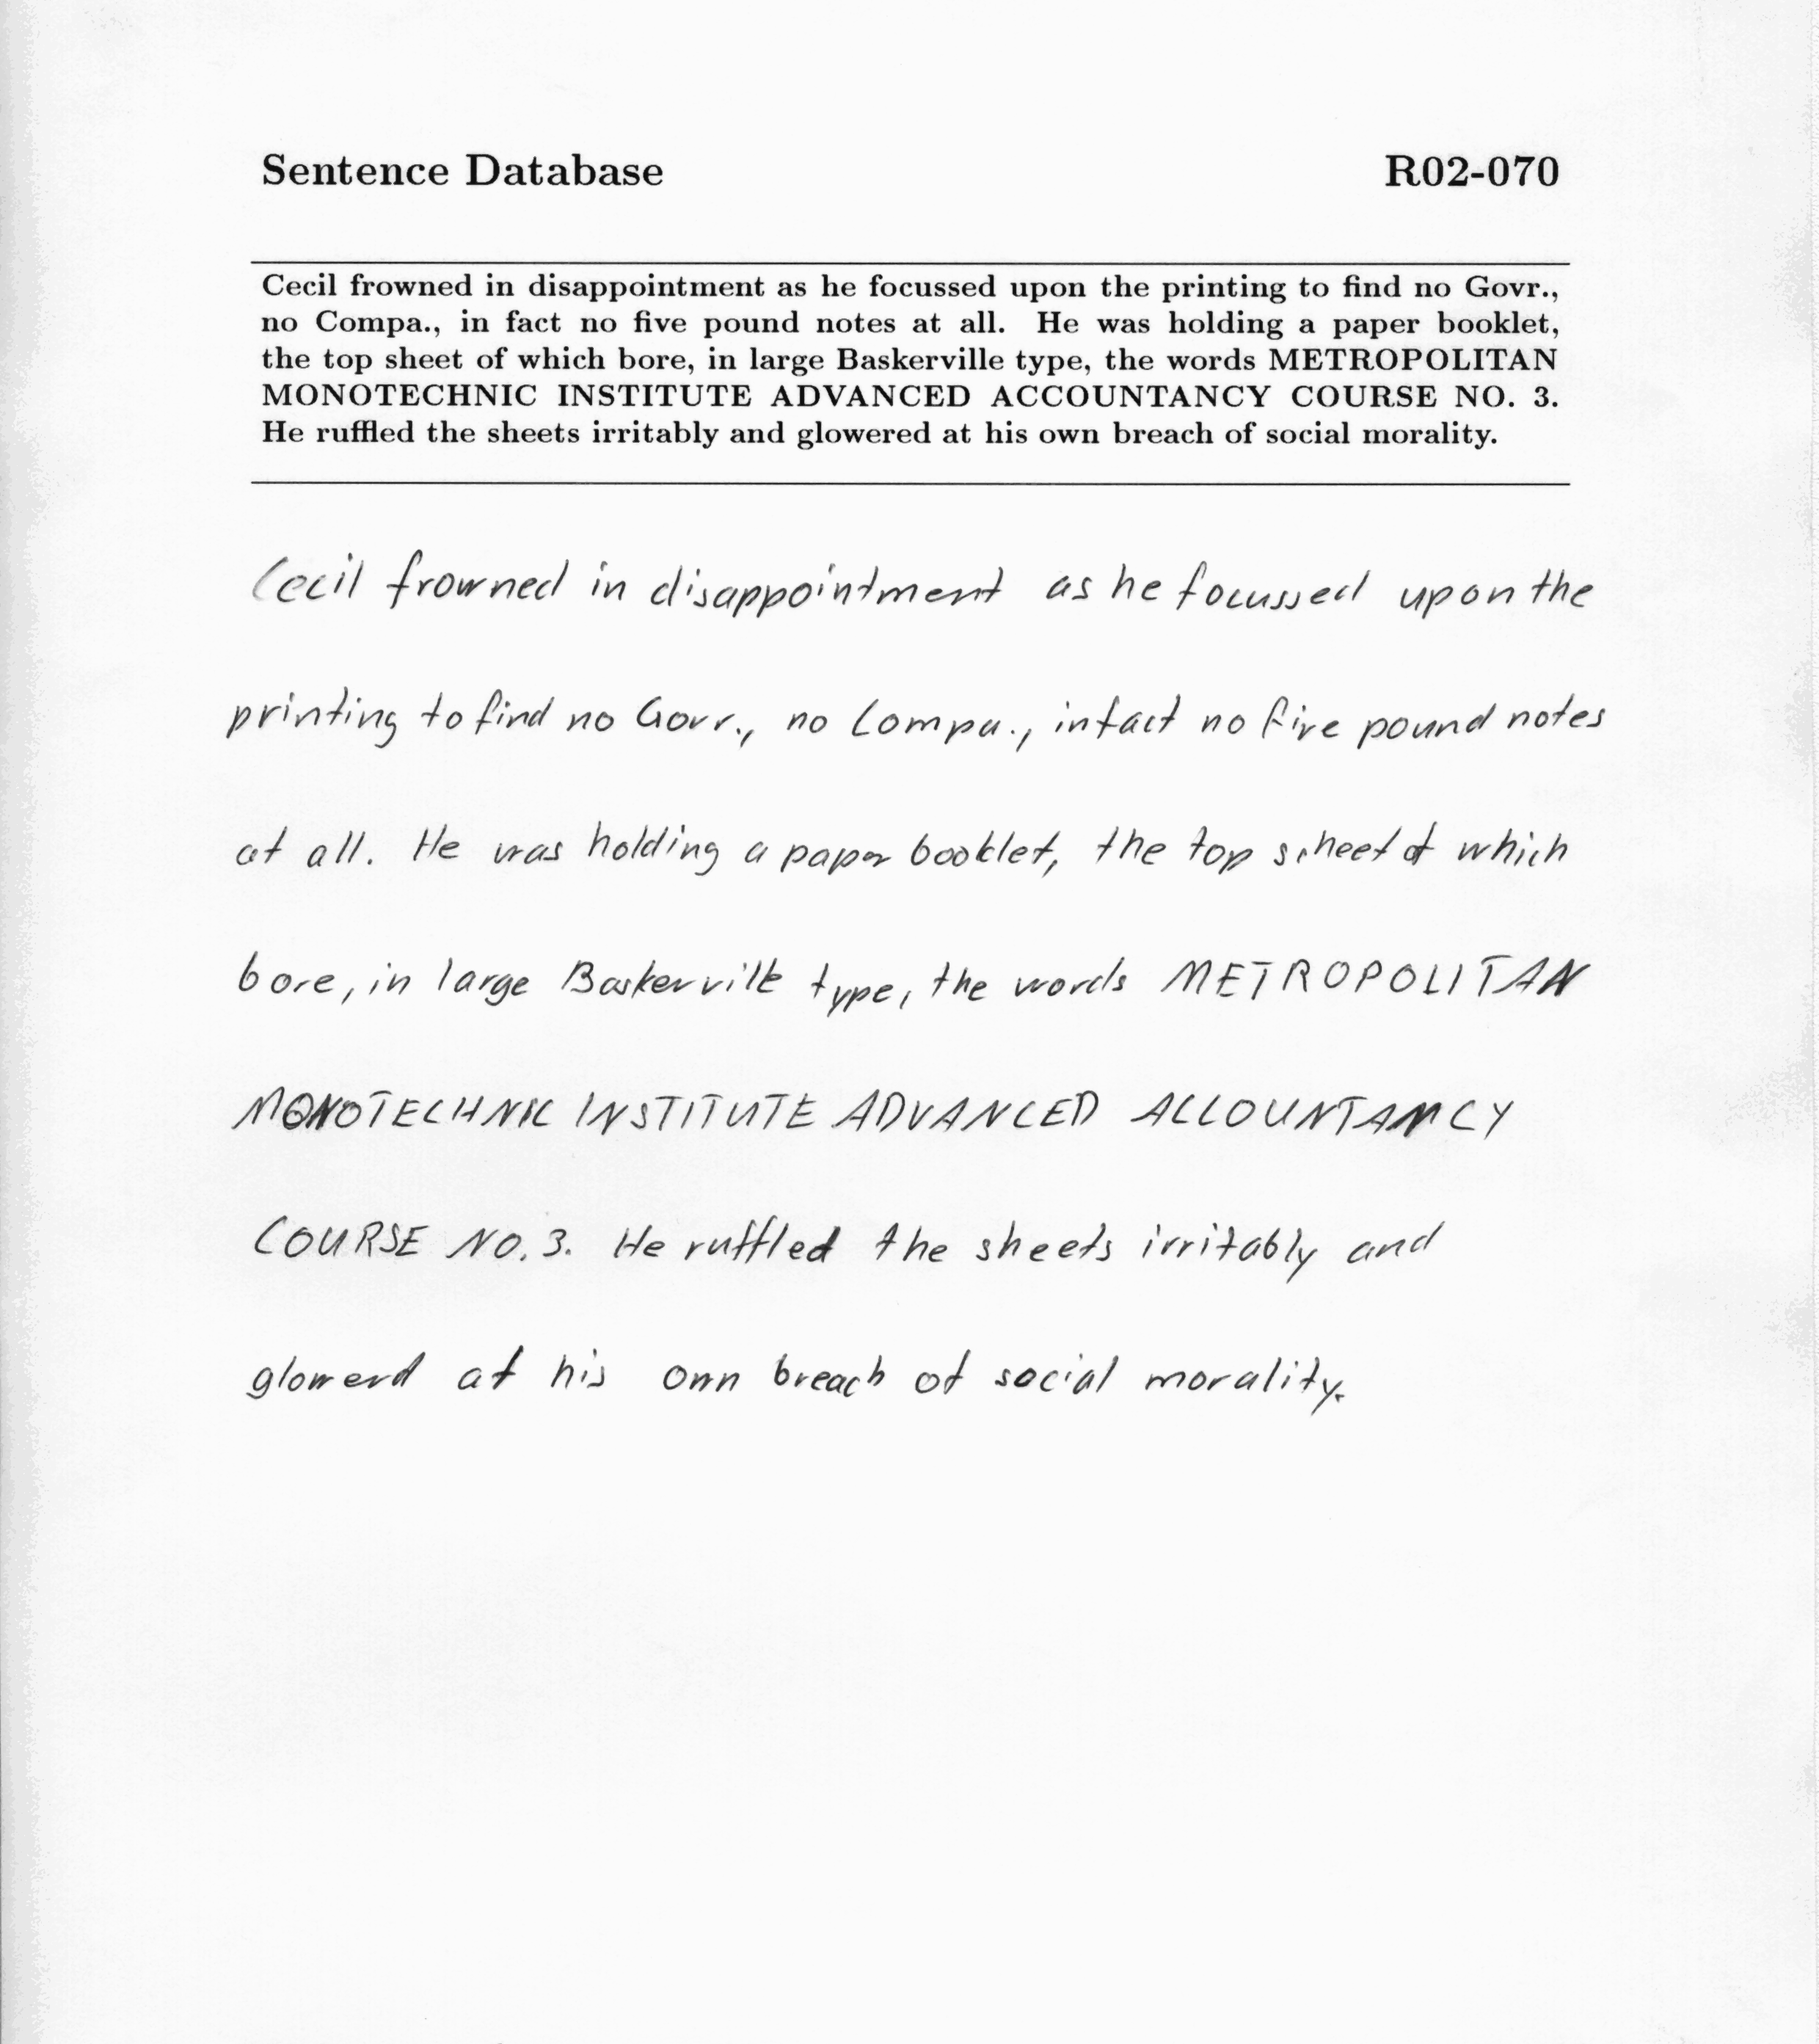 Sentence Database R02-070
Cecil frowned in disappointment as he focussed upon the printing to find no Govr.,
no Compa., in fact no five pound notes at all. He was holding a paper booklet,
the top sheet of which bore, in large Baskerville type, the words METROPOLITAN
MONOTECHNIC INSTITUTE ADVANCED ACCOUNTANCY COURSE NO. 3.
He ruffled the sheets irritably and glowered at his own breach of social morality.
Cecil frowned in disappointment as he focussed upon the
printing to find no Govr., no Compa., in fact no five pound notes
at all. He was holding a paper booklet, the top scheet of which
bore, in large Baskerville type, the words METROPOLITAN
MONOTECHNIC INSTITUTE ADVANCED ACCOUNTANCY
COURSE NO. 3. He ruffled the sheets irritably and
glowerd at his own breach of social morality.